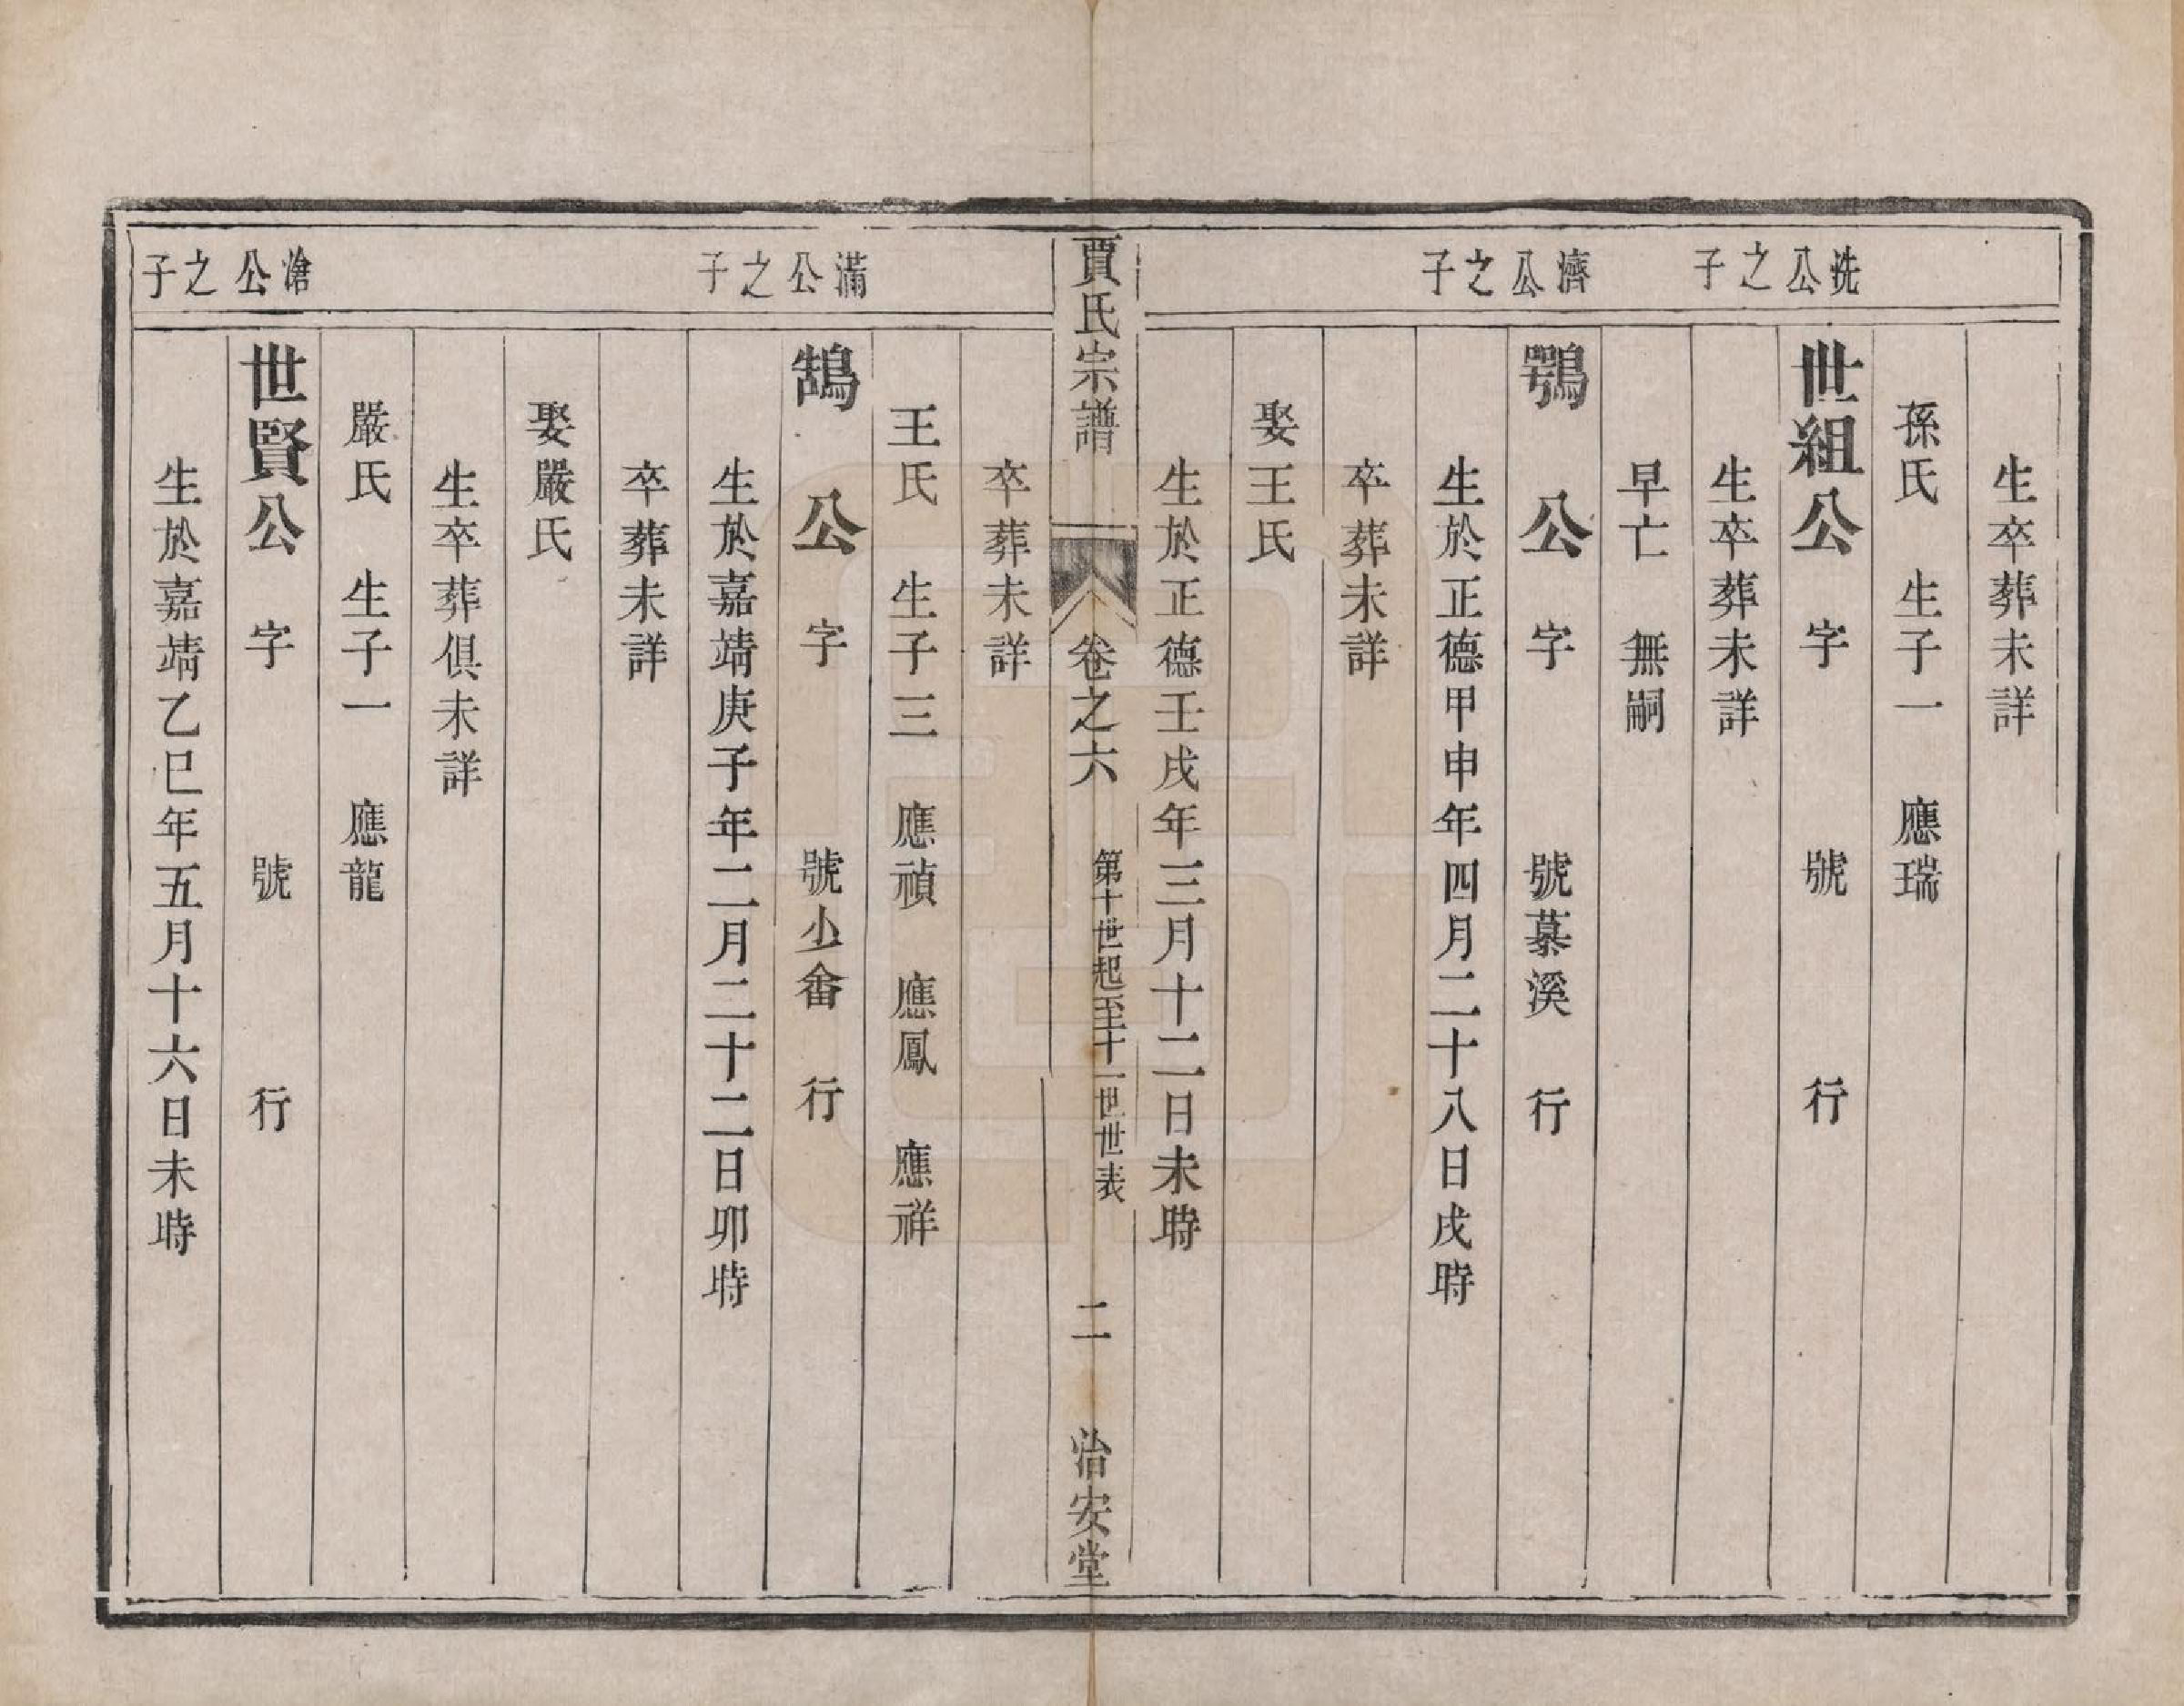 生卒葬未詳
孫氏　生子一　應瑞
洗公之子
世組公　字　號　行
生卒葬未詳
早亡　無嗣
濟公之子
鶚公　字　號慕溪　行
生於正德甲申年四月二十八日戌時
卒葬未詳
娶王氏
生於正德壬戌年三月十二日未時
賈氏宗譜　卷之六　第十世起至十一世世表　二　治安堂
卒葬未詳
王氏　生子三　應禎　應鳳　應祥
滿公之子
鵠公　字　號少畬　行
生於嘉靖庚子年二月二十二日卯時
卒葬未詳
娶嚴氏
生卒葬俱未詳
嚴氏　生子一　應龍
滄公之子
世賢公　字　號　行
生於嘉靖乙巳年五月十六日未時